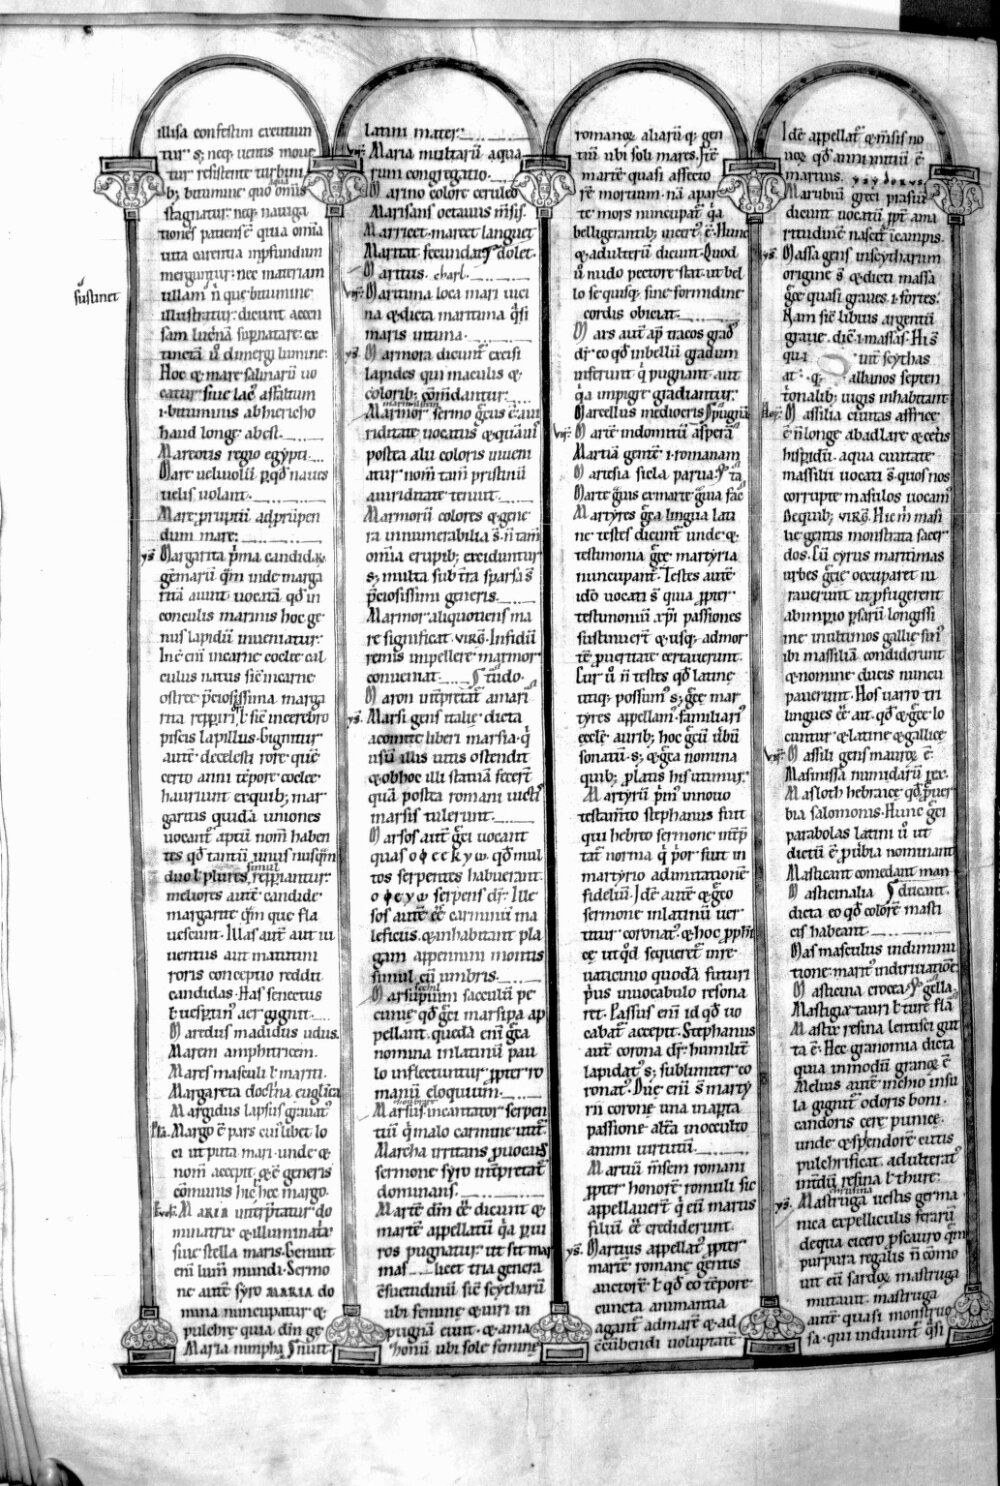 illisa confestim excutiun
tur s; neq; uentis moue
tur resistente turbini
b; bitumine quo om̅s
aqua
stagnatur: neq; nauiga
tiones patiens ē quia om̅ia
uita carentia in p̱fundum
merguntur: nec materiam
sustinet
ullam n̄ que bitumine
illustratur: dicunt accen
sam lucernā supnatare: ex
tincta ū dimergi lumine:
Hoc &̨ mare salinarū uo
catur siue lac᾿ asfaltum
.i. bituminis ab hiericho
haud longe abest.
Mareotis regio egypti.
Mare ueliuolū ꝑ qđ naues
uelis uolant.
Mare pruptū ad prūpen
dum mare:
ys̄ Margarita p̄ma candid.
gemarū qm̄ inde marga
ritā aiunt uocatā qđ in
conculis marinis hoc ge
nus lapidū inueniatur:
Ineē eni in carne coclee cal
culus natus sic̄ in carne
ostree p̄ciosissima marga
rita repp̱iri ł sic̄ in cerebro
piscis lapillus. Gignitur
autē de celesti rore quē
certo anni tēpore coclee
hauriunt ex quib; mar
garitis quidā uniones
uocant᾿ aptū nom̄ haben
tes qđ tantū unus nusqm̄
simul
duo ł plures repp̱iantur:
meliores autē candide
margarite qm̄ que fla
uescunt. Illas aut̄ aut iu
uentus aut matutini
roris conceptio reddit
candidas. Has senectus
ł uesp̱tin᾿ aer gignit.
Maredus madidus udus.
Marem amphitritem.
Mares masculi ł mariti.
Margareta doctna euglica
Margidus lapsus grauat᾿
Pla. Margo ē pars cui᾿ libet lo
ci ut puta mari. unde &
nom̄ accepit &̨ ē generis
cōmunis hic ꝉ hec margo.
MARIA interp̄tatur do
minatrix &̨ illuminatrix
siue stella maris. Genuit
eni lum̄ mundi. Sermo
ne autē syro MARIA do
mina nuncupatur &
pulchre quia dn̄m ge
Maria nimpha nuit
latini mater:
ys̄. Maria multarū aqua
rum congregatio.
Marino colore ceruleo
Marisans octauus m̄sis.
Marricet. marcet languet
Maritat fecundat dolet.
Maritus charł.
Maritima loca mari uici
na &̨ dicta maritima q̄si
maris intima.
ys̄ Marmora dicunt᾿ excisi
lapides qui maculis &
colorib; cōmdantur.
Marmor sermo grēus ē a ui
riditate uocatus &̨ quāuis
postea alii coloris inueni
atur nom̄ tam̄ pristinū
auiriditate tenuit.
Marmorū colores &̨ gene
ra innumerabilia s̄. n̄ tam̄
om̅ia e rupib; exciduntur
s; multa sub tr̄a sparsa s̄
p̄ciosissimi generis.
Marmor aliquotiens ma
re significat. VIRG̅. Infidū
remis impellere marmor
conueniat. tūdo.
Maron int̄p̄tat᾿ amari
ys̄. Marsi gens italie dicta
a comite liberi marsia. q̄
usū illis uitis ostendit
&̨ ob hoc illi statuā fecer̄t
quā postea romani uictis
marsis tulerunt.
Marsos aut̄ grēi uocant
quas οφεϲκγω. qđ mul
tos serpentes habuerant.
οφεγω serpens dr̄. Ille
sos autē ēē carminū ma
leficiis. &̨ inhabitant pla
gam appennini montis
simul cū umbris.
Marsupium sacculū pe
cunię qđ grēi marsipa ap
pellant. quedā eni greca
nomina in latinū pau
lo inflectuntur ꝓpter ro
manū eloquium.
Marsus. incantator serpen
tiū q̄ malo carmine utit᾿
Marcha irritans puocans
sermone syro int̄p̄tat᾿
dominans.
Martē dm̄ ēē dicunt &
martē appellatū q̄a ꝑ ui
ros pugnatur: ut sit mar
mas. licet tria genera
cōsuetudinū sic̄ scytharū
ubi femine &̨ uiri in
pugnā eunt. &̨ ama
zonū ubi sole femine
romanoꝝ aliarū q; gen
tiū ubi soli mares. Itē
martē quasi affecto
rē mortium. nā a mar
te mors nuncupat᾿ q̄a
belligerantib; incert᾿ ē. Hunc
&̨ adulterū dicunt. Quod
ū nudo pectore stat. ut bel
lo se quisq; sine formidine
cordis obiciat.
Mars aut̄ ap̄ tracos grad᾿
dr̄. eo qđ in bellū gradum
inferunt q̄ pugnant aut
q̄a impigre gradiantur.
Marcellus mediocris pugnā
ys̄. Martē indomitū asperā
Martiā gentē .i. romanam
Martisia sicla parua. ta
Marte grēus ex marte greca fac̄
Martyres greca lingua lati
ne testes dicunt᾿ unde &
testimonia grece martyria
nuncupant᾿. Testes autē
ido uocati s̄ quia ꝓpter
testimoniū xp̄i passiones
sustinuer̄t &̨ usq; ad mor
tē ꝓ ueritate certauerunt.
Cur ū n̄ testes qđ latine
utiq; possum᾿ s; grece mar
tyres appellam᾿. familiari᾿
ecclę aurib; hoc grecū ūbū
sonat. s; &̨ greca nomina
quib; ꝓ latinis his utimur.
Martyrū p̄m᾿ in nouo
testam̄to stephanus fuit
qui hebreo sermone int̄p̄
tat᾿ norma q̄ p̄or fuit in
martyrio ad imitationē
fidelium. Idē autē &̨ greco
sermone in latinū uer
titur coronat᾿. &̨ hoc ꝓph̄i
cę ut qđ sequeret᾿ in re
uaticinio quodā futuri
p̄us in uocabulo resona
ret. Passus eni id qđ uo
cabat᾿ accepit. Stephanus
autē corona dr̄: humilit̄
lapidat᾿ s; sublimiter co
ronat᾿. Due eni s̄ marty
rii corone una in aperta
passione. alt̄a in occulto
animi uirtutū.
Martiū m̄sem romani
ꝓpter honorē romuli sic
appellauert᾿ q̄ eū martis
filiū ēē crediderunt.
ys̄. Martius appellat᾿ ꝓpter
martē romane gentis
auctorē ł qđ eo tēpore
cuncta animantia
agant᾿ ad marē &̨ ad
cōcubendi uoluptatē
Idē appellat᾿ &̨ m̄sis no
uoꝝ qđ anni initiū ē
martius.
Marubiū greci prasiū
dicunt uocatū ꝓpt᾿ ama
ritudinē nascit᾿ in campis.
ys̄. Massa gens in scytharum
origine s̄ &̨ dicti massa
gete quasi graues .i. fortes.
Nam sic̄ liuius argentū
graue. dic̄ .i. massas. Hi s̄
qui int̄ scythas
at q; albanos septen
trionalib; iugis inhabitant
Massilia ciuitas affrice
ē n̄ longe ab adlare &̨ cet̄is
hisperidū. a qua ciuitate
massilii uocati s̄. quos nos
corrupte masulos uocam᾿
De quib; VIRG̅. Hic m̄ massi
lie gentis monstrata sacer
dos. Cū cyrus maritimas
urbes grecie occuparet iu
rauerunt ut ꝓfugerent
ab imperio persarū longissi
me in ultimos gallie sin᾿
ibi massiliā condiderunt
&̨ nomine ducis nuncu
pauerunt. Hos uarro tri
lingues ēē ait. qđ &̨ grece lo
cuntur &̨ latine &̨ gallice
ys̄. Massili gens mauroꝝ ē.
Masinissa numidarū rex.
Masloth hebraice qđ puer
bia salomonis. Hunc grēi
parabolas latini ū ut
dictū ē puerbia nominant
Masticant comedant man
Mastichalia ducant.
dicta eo qđ colorē masti
cis habeant
Mas masculus in diminu
tione: marit᾿ in diriuationē
Masticina crocea. gella.
Mastigia tauri ł ture flā
Mastix resina lentisci gut
ta ē. Hec granomia dicta
quia in modū granoꝝ ē
Melius autē in chio insu
la gignit᾿ odoris boni.
candoris cere punice.
unde &̨ splendorē cutis
pulchrificat. adulterat᾿
int̄dū resina ł thure.
crusina
ys̄. Mastruga uestis germa
nica ex pelliculis ferarū
de qua cicero ꝓ scauro qm̄
purpura regalis n̄ cōmo
uit eū sardoꝝ mastruga
mutauit. mastruga
autē quasi monstruo
sa. qui induunt᾿ q̄si